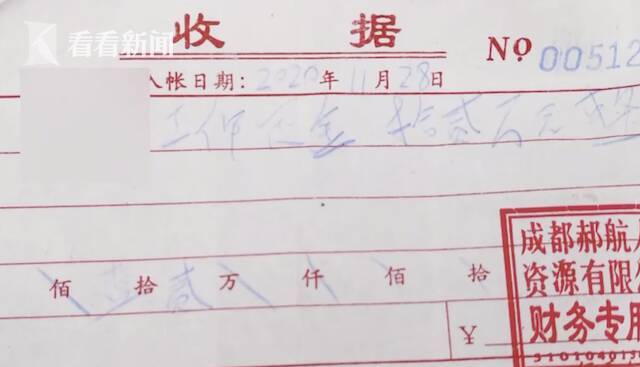 看看新闻
收 据 No 00512
入帐日期: 2020 年 11 月 28 日
工作 金 拾贰万元
佰 壹 拾 贰 万 仟 佰 拾
¥
成都郝航人
资源有限公
财务专用
510104013